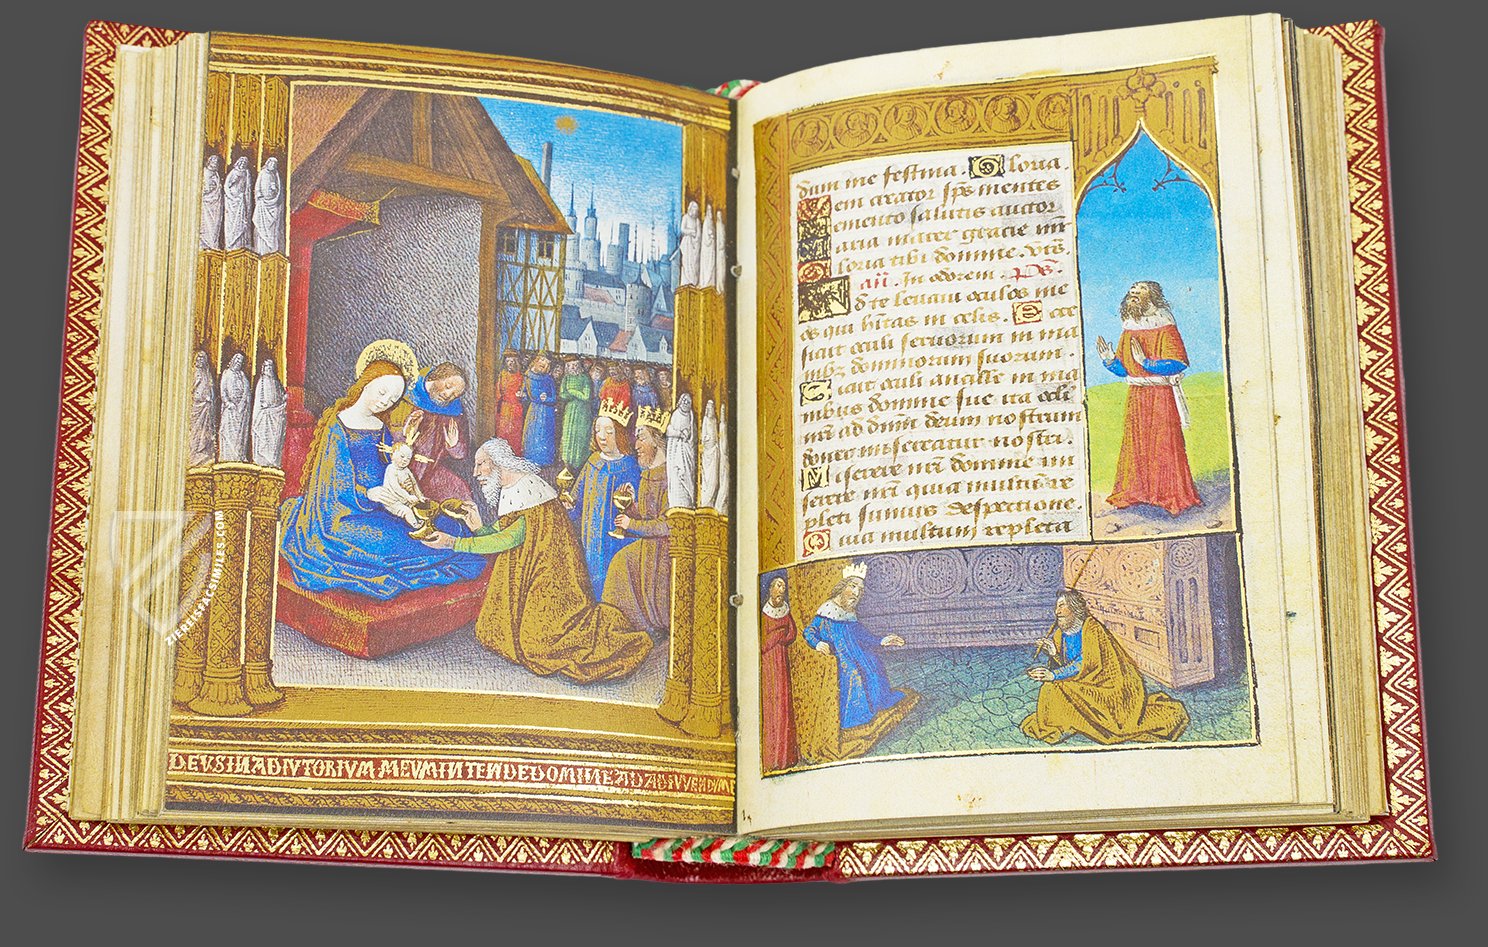 DEVSINADIVTORIVM MEVM INTENDEDOMINEADADIVVENDVM
ZIEREISFACSIMILES.COM
dum me festina. Gloria.
em creator sps mentes
emento salutis auctor
aria mater gracie mr
loria tibi domine. vts.
an. In odorem. Ps.
d te levavi oculos me
os qui hitas in celis. Ecce
sicut oculi servorum in ma
nibz dominorum suorum.
Sicut oculi ancille in ma
nibus domine sue ita oculi
nri ad dnm deum nostrum
donec misereatur nostri.
Miserere nri domine mi
serere nri quia multum re
pleti sumus despectione.
Quia multum repleta